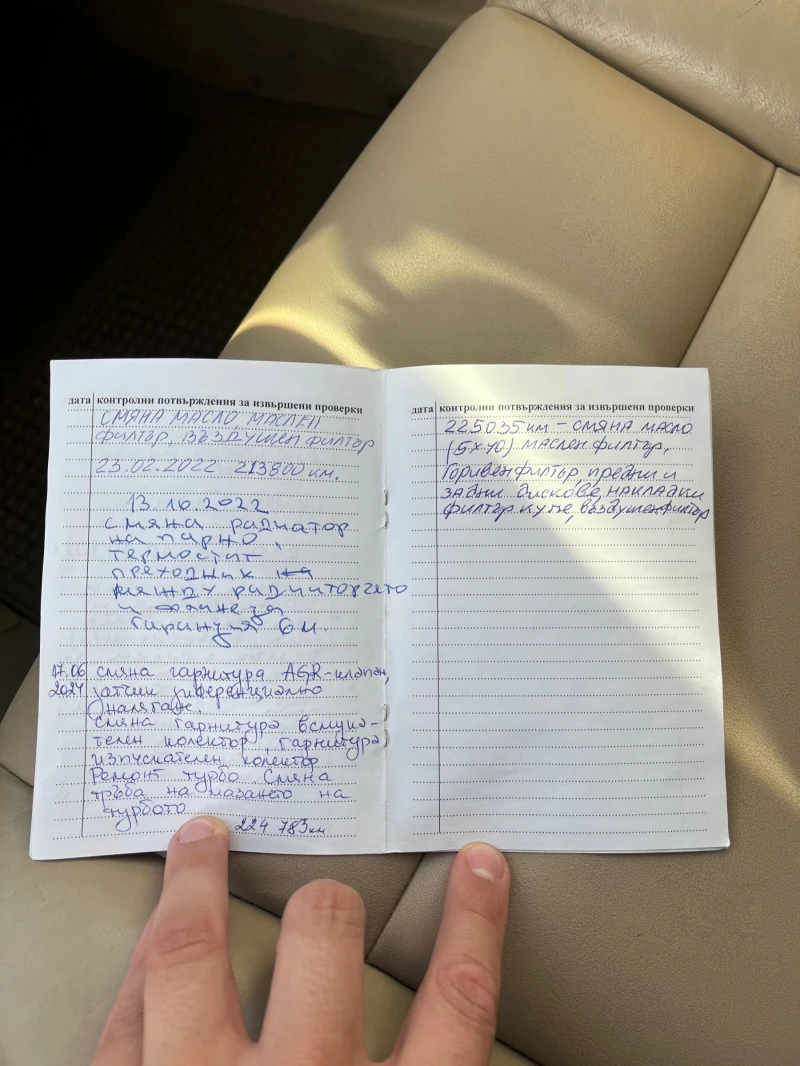 дата контролни потвърждения за извършени проверки
СМЯНА МАСЛО, МАСЛЕН
ФИЛТЪР, ВЪЗДУШЕН ФИЛТЪР
23.02.2022 213800 км.
13.10.2022
смяна радиатор
на парно,
термостат
преходник
между радиаторчето
и
Гаранция 6 м
17.06 смяна гарнитура AGR-клапан,
2024 датчик диференциално
налягане.
Смяна гарнитура всмука-
телен колектор, гарнитура
изпускателен колектор
Ремонт турбо Смяна
тръба на мазането на
турбото
224 783 км
дата контролни потвърждения за извършени проверки
225035 км - СМЯНА МАСЛО
(5х40) МАСЛЕН ФИЛТЪР,
Горивен филтър, предни и
задни дискове, накладки
филтър купе, въздушен филтър